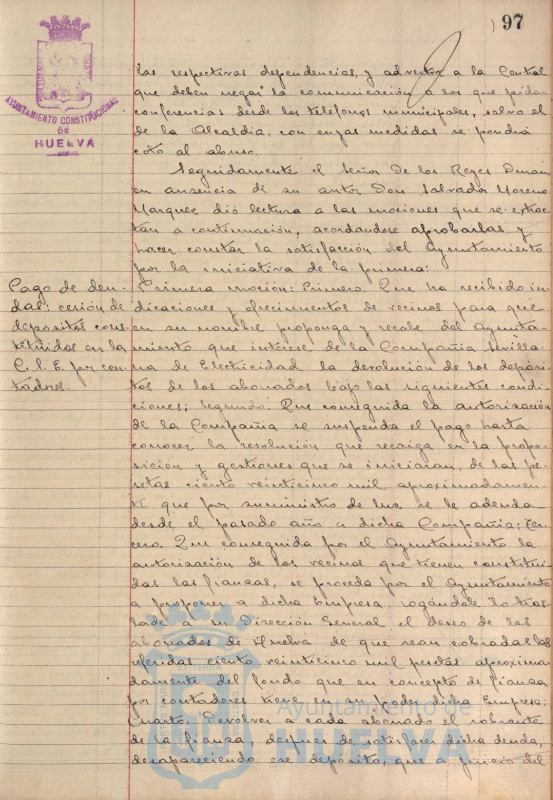 97
AYUNTAMIENTO CONSTITUCIONAL
DE
HUELVA
las respectivas dependencias, y advertir a la Central
que deben negar la comunicación a los que pidan
conferencias desde los teléfonos municipales, salvo el
de la Alcaldía, con cuyas medidas se pondrá
coto al abuso.
Seguidamente el Señor De los Reyes Duran
en ausencia de su autor Don Salvador Moreno
Marquez dió lectura a las mociones que se extrac-
tan a continuación, acordandose aprobarlas y
hacer constar la satisfacción del Ayuntamiento
por la iniciativa de la primera:
Pago de deu-
das: cesión de
depositos cons-
tituidos en la
C. S. E. por con-
tadores.
Primera moción: Primero. Que ha recibido in-
dicaciones y ofrecimientos de vecinos para que
en su nombre proponga y recabe del Ayunta-
miento que interese de la Compañia Sevilla-
na de Electricidad la devolución de los depósi-
tos de los abonados bajo las siguientes condi-
ciones; Segundo. Que conseguida la autorización
de la Compañia se suspenda el pago hasta
conocer la resolución que recaiga en la propo-
sición y gestiones que se iniciaran, de las pe-
setas ciento veinticinco mil aproximadamen-
te que por suministro de luz se le adeuda
desde el pasado año a dicha Compañia: Ter-
cero. Que conseguida por el Ayuntamiento la
autorización de los vecinos que tienen constitui-
das las fianzas, se proceda por el Ayuntamiento
a proponer a dicha Empresa, rogándole lo tras-
lade a su Dirección General el deseo de los
abonados de Huelva de que sean cobradas las
referidas ciento veinticinco mil pesetas aproxima-
damente del fondo que en concepto de fianza
por contadores tiene en su poder dicha Empresa:
Cuarto. Devolver a cada abonado el sobrante
de la fianza, despues de satisfacer dicha deuda,
desapareciendo ese depósito, que a juicio del
Ayuntamiento de
HUELVA